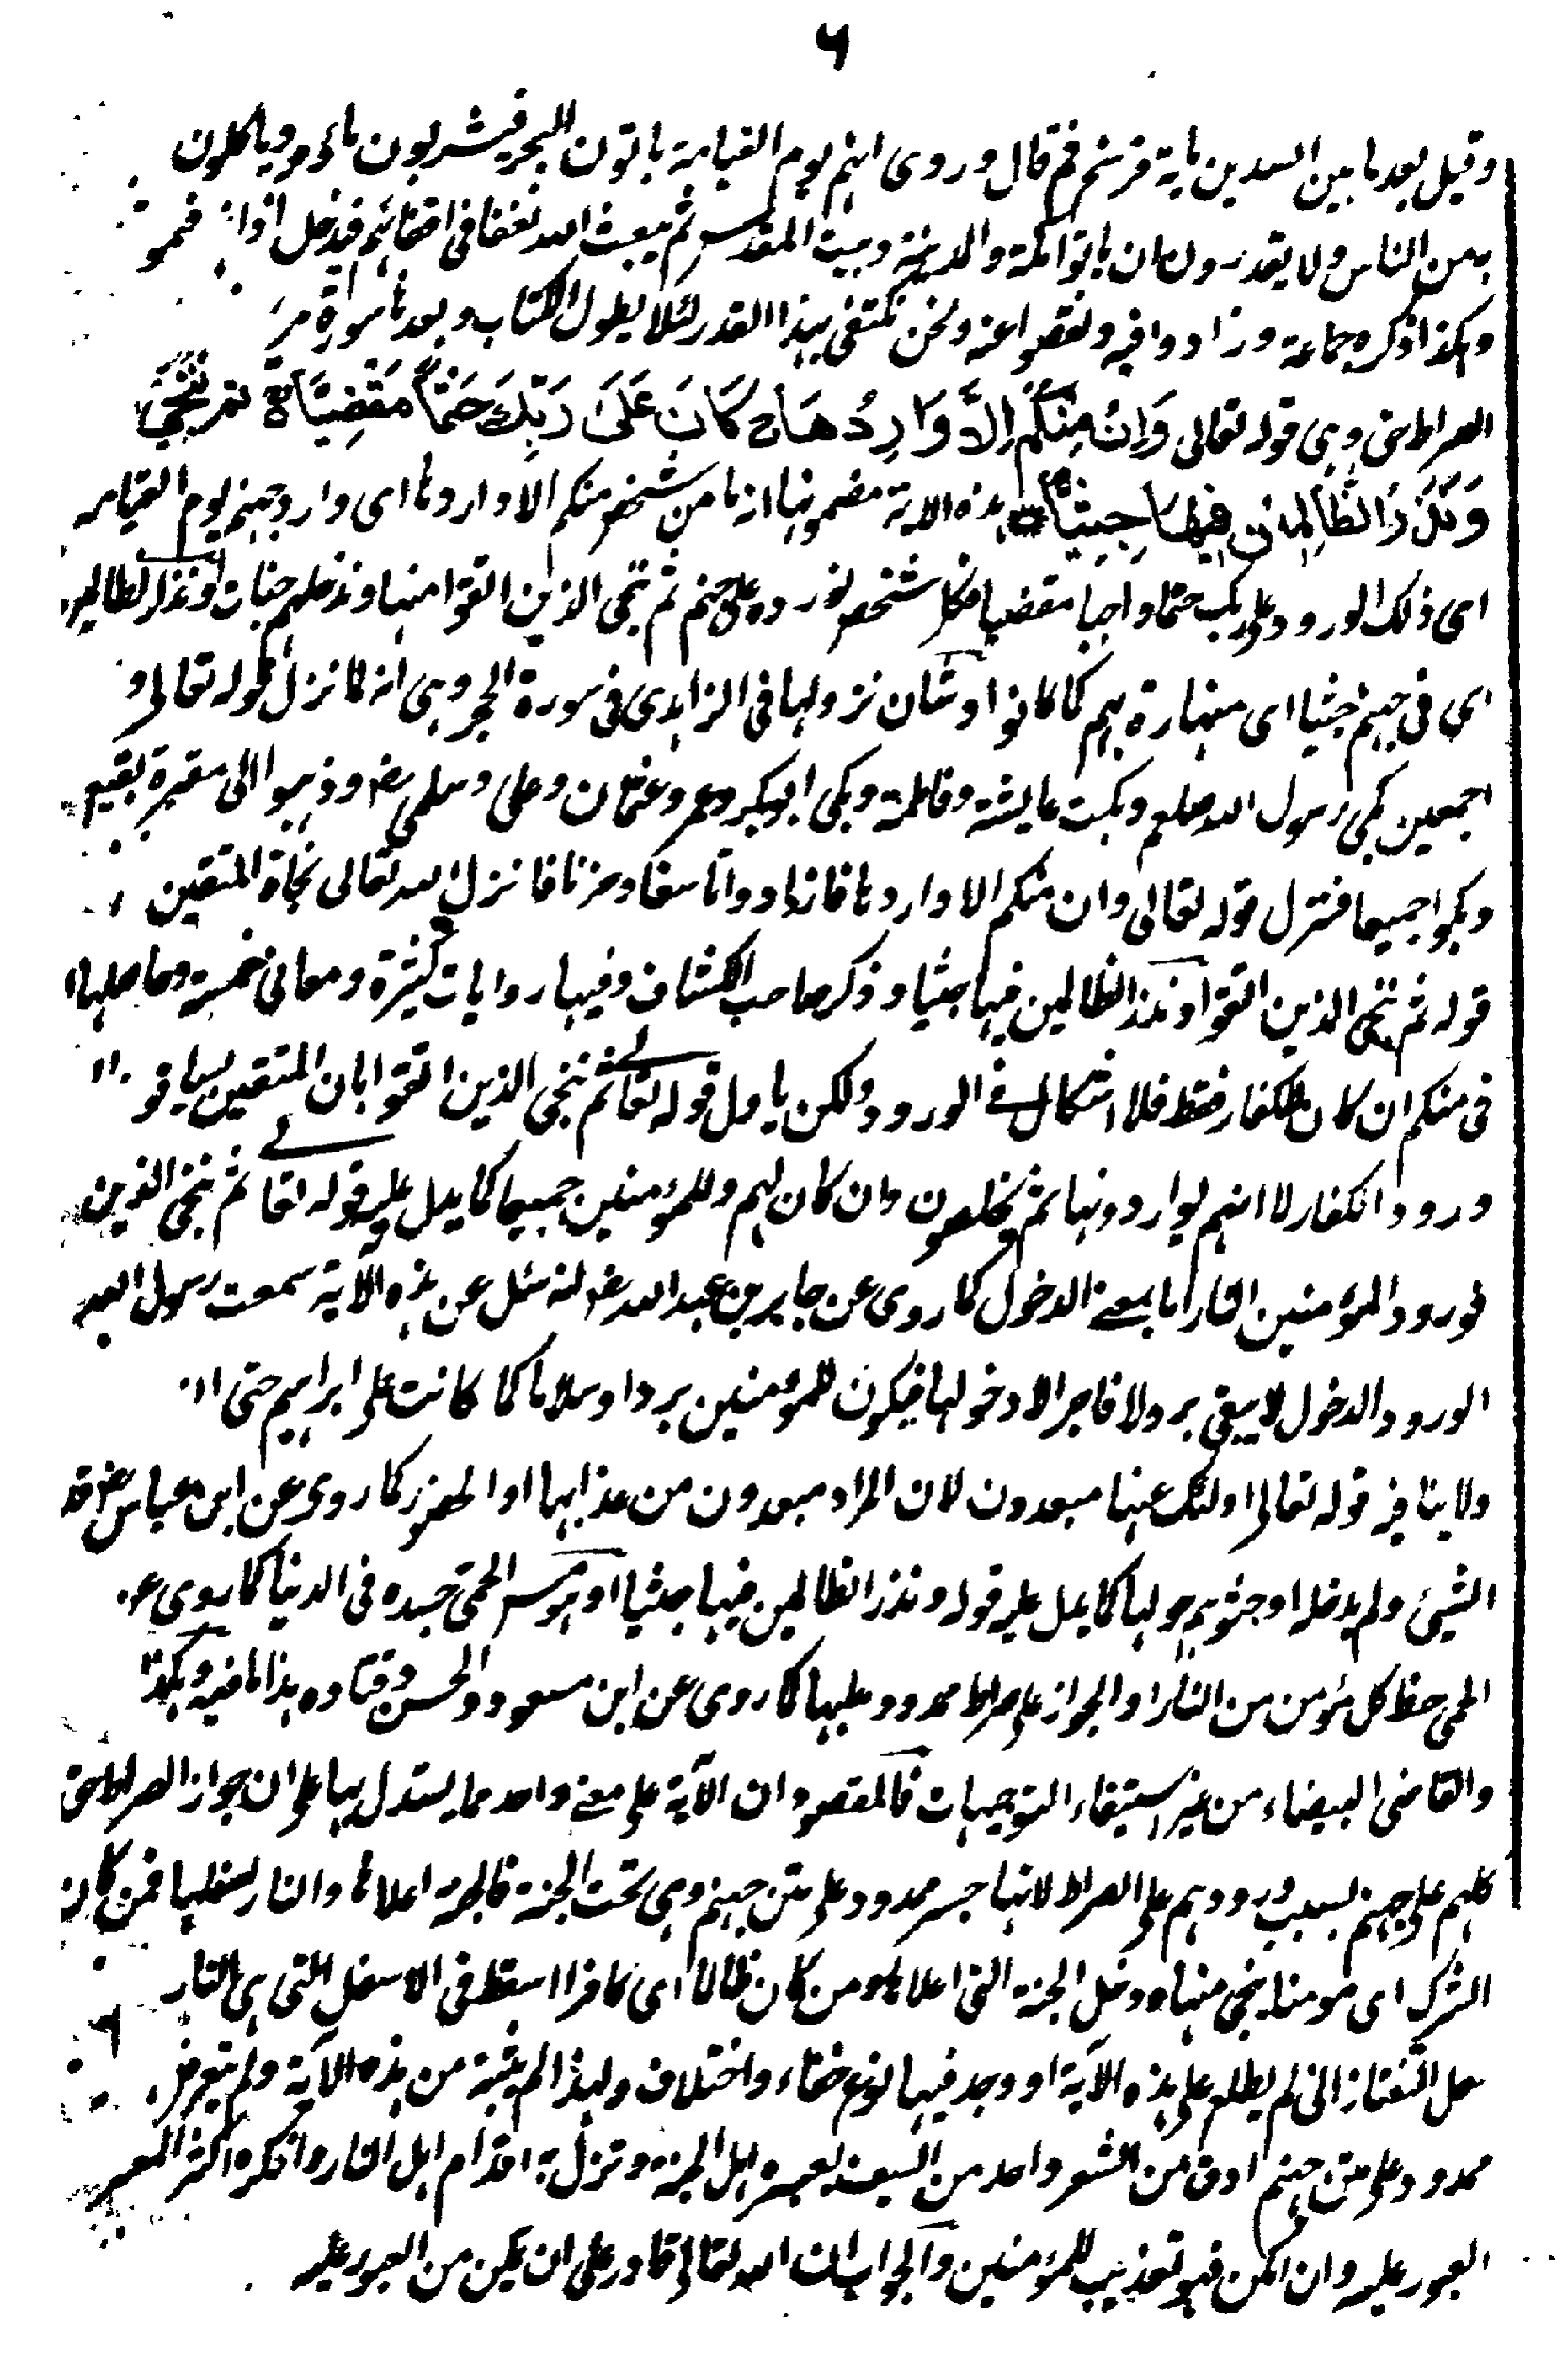 ٦
وقيل بعد ما بين السدين ماية فرسخ ثم قال وروى انهم يوم القيامة ياتون البحر فيشربون ماءه وياكلون
بهمن الناس ولا يقدرون ان ياتوا مكة والمدينة وبيت المقدس ثم يبعث الله نغفا في اقفائهم فيدخل اذان فيمو
وهكذا ذكره جماعة وزادوا فيه ونقصوا عنه ونحن نكتفي بهذا القدر لئلا يطول الكتاب وبعدها سورة مر
الصراط حق وهى قوله تعالى وَاِنْ مِنْكُمْ اِلَّا وَارِدُهَا ج كَانَ عَلَى رَبِّكَ حَتْمًا مَقْضِيًّا ة ثم نُنَجِّي
وَنَذَرُ الظَّالِمِينَ فِيهَا جِثِيًّا هذه الاية مضمونها انه ما من شخص منكم الا واردها اى وارد جهنم يوم القيامه
اى ذلك الورود على ربك حتما واجبا مقضيا فكل شخص نورده على جهنم ثم ننجى الذين اتقوا منها وندخلهم جنات ونذر الظالمين
اى في جهنم جثيا اى منهارة بهم كما كانوا وشان نزولها في الزاهدى في سورة الحجر وهى انه لما نزل قوله تعالى و
اجمعين بكى رسول الله صلعم وبكت عايشة وفاطمة وبكى ابوبكر وعمر وعثمان وعلى وسلمى رض وذهبوا الى مقبرة بقيع
وبكوا جميعا فنزل قوله تعالى وان منكم الا واردها فازدادوا تاسفا وحزنا فانزل الله تعالى نجاة المتقين
قوله ثم ننجى الذين اتقوا ونذر الظالمين فيها جثيا وذكر صاحب الكشاف وفيها روايات كثيرة ومعانى خمسة وحاصلها ا
فى منكم ان كان للكفار فقط فلا اشكال في الورود ولكن ياول قوله تعالى ثم ننجى الذين اتقوا بان المتقين يساقو
ورود الكفار لا انهم يواردونها ثم يخلصون وان كان لهم وللمؤمنين جميعا كما يدل عليه قوله تعالى ثم ننجى الذين
فورود المؤمنين النار اما بمعنى الدخول كما روى عن جابر بن عبد الله رض انه سئل عن هذه الآية سمعت رسول الله
الورود الدخول لا يبقى بر ولا فاجر الا دخولها فيكون للمؤمنين بردا وسلاما كما كانت على ابراهيم حتى ان
ولا ينافيه قوله تعالى اولئك عنها مبعدون لان المراد مبعدون من عذابها او الحضور كما روى عن ابن عباس رض قد
الشيئ ولم يدخله او جثوهم حولها كما يدل عليه قوله ونذر الظالمين فيها جثيا او هو مس الحمى جسده في الدنيا كما روى عن
الحمى حظ كل مؤمن من النار او الجواز على صراط ممدود عليها كما روى عن ابن مسعود والحسن وقتاده هذا ما فيه وهكذا
والقاضى البيضاء من غير استيفاء التوجيهات فالمقصود ان الآية على معنى واحد مما يستدل بها على ان جواز الصراط حق
كلهم على جهنم بسبب ورودهم على الصراط لانها جسر ممدود على متن جهنم وهى تحت الجنة فالجنة اعلاها والنار سفلها فمن كان
الشرك اى مومنا ينجى منها ودخل الجنة التى اعلاها ومن كان ظالما اى كافرا اسقط فى الاسفل التى هى النار
عل التفتازانى لم يطلع على هذه الآية او وجد فيها نوع خفاء واختلاف ولهذا لم يثبته من هذه الآية ولم يتعرض
ممدود على متن جهنم ادق من الشعر واحد من السيف يعبره اهل الجنة وتزل به اقدام اهل النار وانكره اكثر المعتز
العبور عليه وان امكن فهو تعذيب للمؤمنين والجواب ان الله تعالى قادر على ان يمكن من العبور عليه